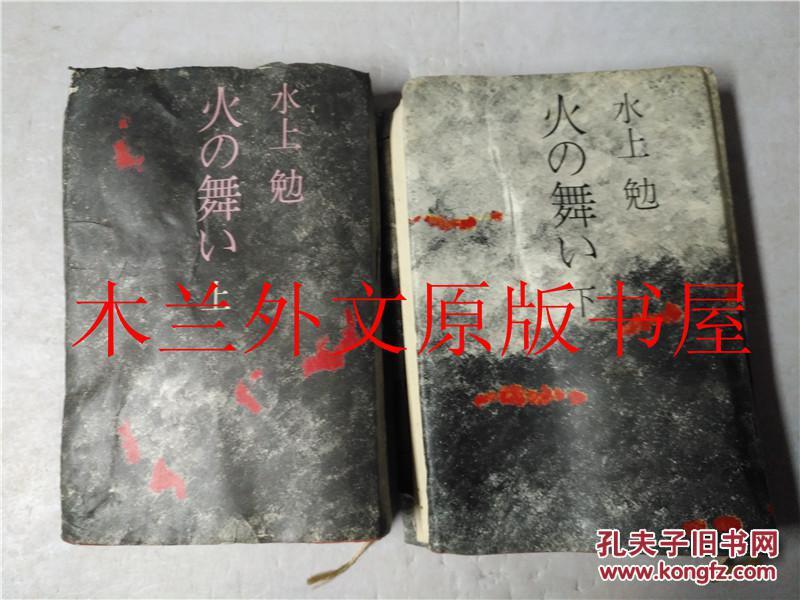 水上 勉
火の舞い 上
水上 勉
火の舞い 下
木兰外文原版书屋
孔夫子旧书网
www.kongfz.com